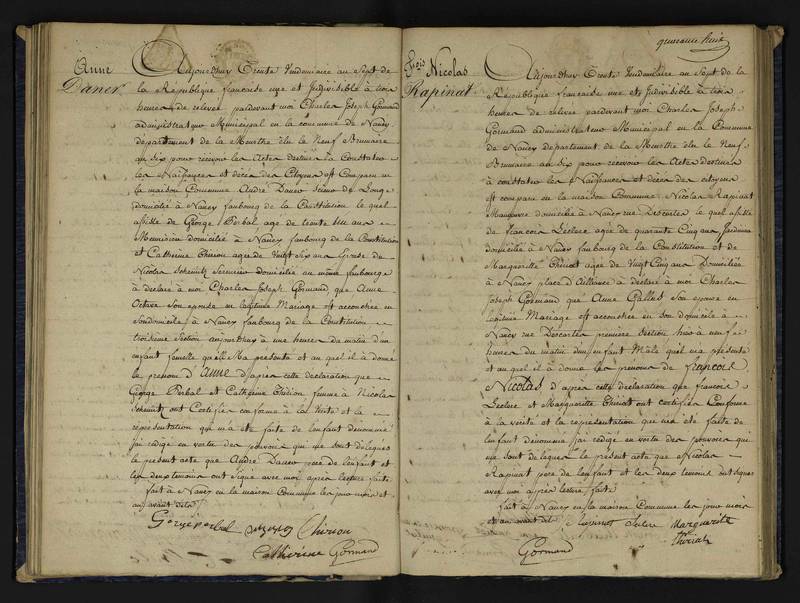 Anne
Daner
Aujourdhuy Trente Vendemiaire an Sept de
la République francaise une et Indivisible à trois
heures de relevée pardevant moi Charles Joseph Gormand
administrateur Municipal en la commune de Nancy
département de la Meurthe élu le Neuf Brumaire
an six pour recevoir les Actes destinés à Constater
les Naissances et décès des Citoyens est Comparu en
la maison Commune André Daner Scieur de Longs
domicilié à Nancy faubourg de la Constitution le quel
assisté de George Perbal agé de trente ans
Menuisier domicilié à Nancy faubourg de la Constitution
et Catherine Thirion agée de Vingt six ans Epouse de
Nicolas Schemitz Serrurier domiciliée au même faubourg
à déclaré à moi Charles Joseph Gormand que Anne
Octave son epouse en legitime Mariage est accouchée en
Sondomicile à Nancy faubourg de la Constitution
troisieme Section aujourdhuy à une heure du matin d'un
enfant femelle qu'il Ma présenté et au quel il à donné
le prenom d'Anne d'après cette déclaration que
George Perbal et Catherine Thirion femme à Nicolas
Schemitz ont Certifié conforme à la Vérité et la
représentation qui m'a été faite de lenfant dénommé
j'ai rédigé en vertu des pouvoirs qui me sont délégués
le présent acte que André Daner pere de lenfant et
les deux temoins ont signé avec moi après lecture faite
fait à Nancy en la maison Commune les jour mois et
an avant dits
George perbal Thirion
Catherine Gormand
quarante huit
frois Nicolas
Rapinat
Aujourdhuy Trente Vendemiaire an Sept de la
République francaise une et Indivisible à trois
heures de relevée pardevant moi Charles Joseph
Gormand administrateur Municipal en la Commune
de Nancy département de la Meurthe élu le Neuf
Brumaire an six pour recevoir les Actes destinés
à constater les Naissances et décès des citoyens
est comparu en la maison Commune Nicolas Rapinat
Manoeuvre domicilié à Nancy rue Descartes le quel assisté
de francois Leclere agé de quarante Cinq ans Jardinier
domicilié à Nancy faubourg de la Constitution et de
Margueritte Thiriat agée de Vingt Cinq ans Domiciliée
à Nancy place d'Alliance à déclaré à moi Charles
Joseph Gormand que Anne Gallet Son epouse en
legitime Mariage est accouchée en son domicile à
Nancy rue Descartes première section hier à neuf
heures du matin d'un enfant Mâle quil ma présenté
et au quel il à donné les prenoms de francois
Nicolas d'après cette declaration que francois
Leclere et Margueritte Thiriat ont certifiée Conforme
à la verité et la représentation qui m'a été faite de
l'enfant dénommé jai rédigé en vertu des pouvoirs qui
me sont délégués le présent acte que Nicolas
Rapinat pere de lenfant et les deux temoins ont signé
avec moi après lecture faite
fait à Nancy en la maison Commune les jour mois
et an avant dit Marguerite
Gormand Thiriat